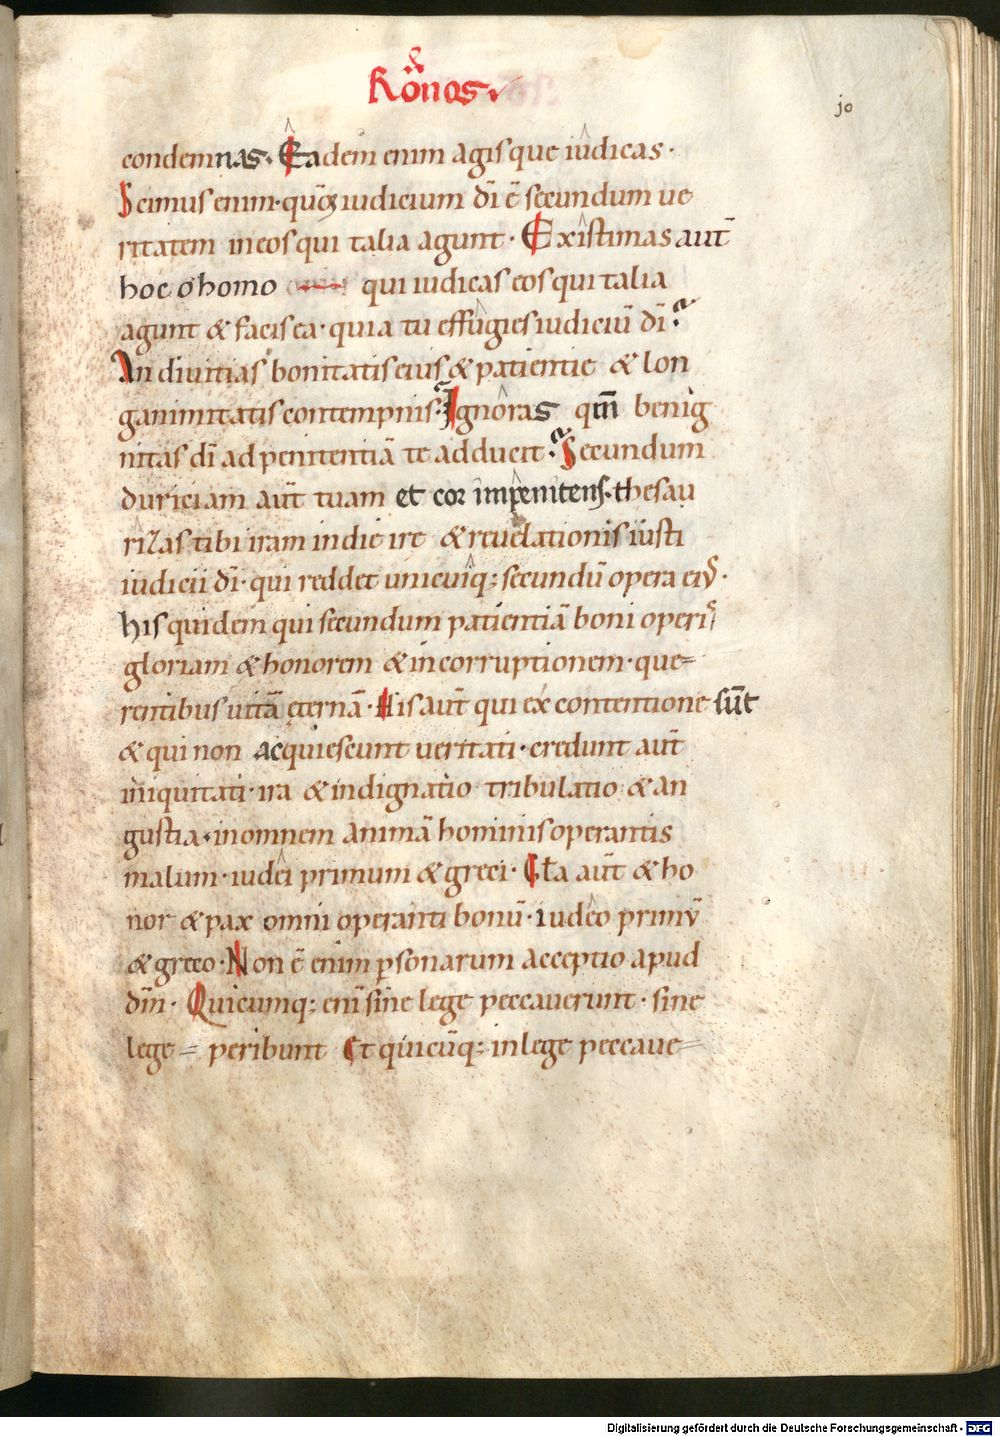 Ro͂nos
jo
condemnas. Eadem enim agis que iudicas·
Scimus enim· qūo iudicium dī ē secundum ue
ritatem in eos qui talia agunt· Existimas aut̄
hoc o homo qui iudicas eos qui talia
agunt & facis ea· quia tu effugies iudiciū dī?
An diuitias bonitatis eius & patientie & lon
ganimitatis contempnis? Ignoras qm̄ benig
nitas dī ad penitentiā te adducit? Secundum
duriciam aut̄ tuam et cor impenitens· thesau
rizas tibi iram in die ire & reuelationis iusti
iudicii dī· qui reddet unicuiq; secundū opera ei᷒·
his quidem qui secundum patientiā boni operis
gloriam & honorem & incorruptionem· que=
rentibus uitā ęternā· His aut̄ qui ex contentione sūt
& qui non acquiescunt ueritati· credunt aut̄
iniquitati· ira & indignatio tribulatio & an
gustia· in omnem animā hominis operantis
malum· iudei primum & greci· Gła aut̄ & ho
nor & pax omni operanti bonū· iudeo primū
& greco· Non ē enim ꝑsonarum acceptio apud
dm̄· Quicumq; enī sine lege peccauerunt· sine
lege = peribunt Et quicūq; in lege peccaue=
Digitalisierung gefördert durch die Deutsche Forschungsgemeinschaft - DFG